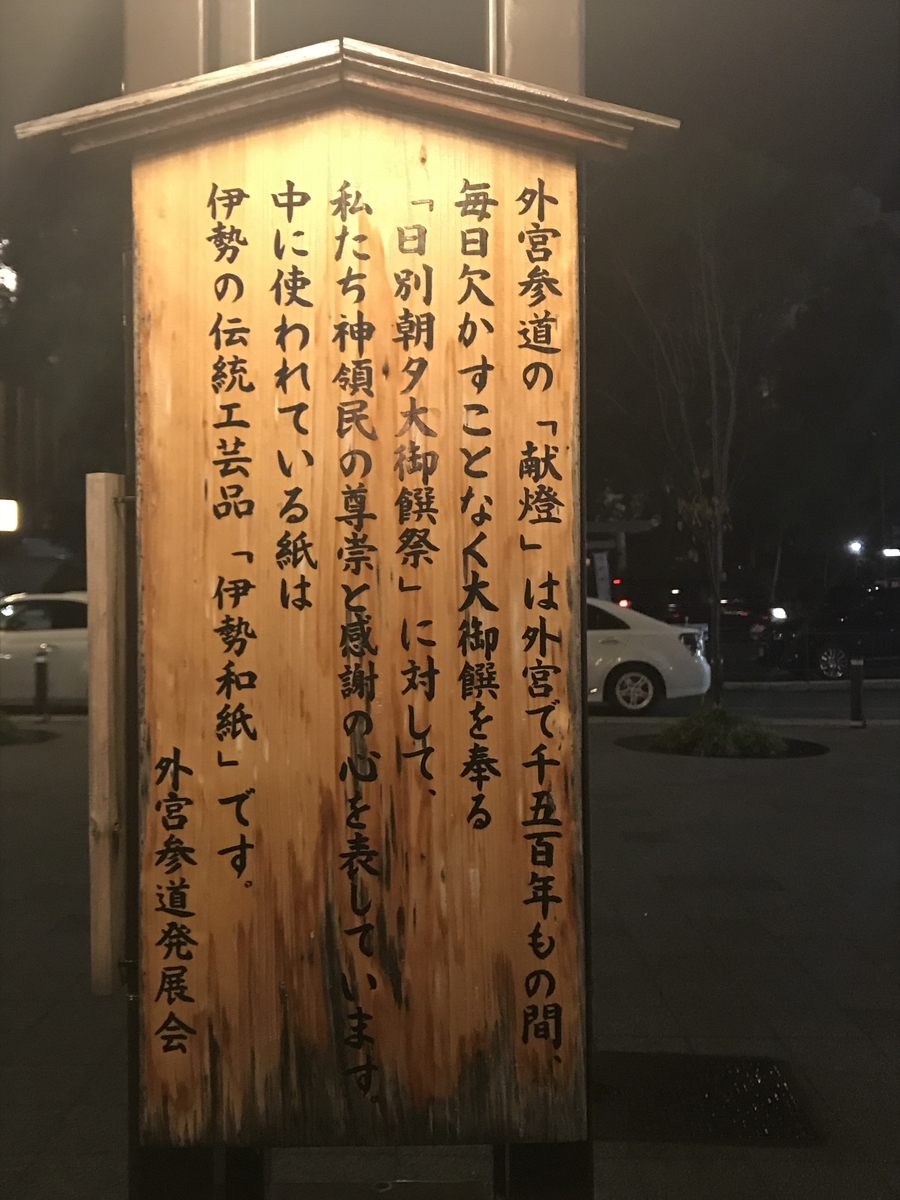 外宮参道の「献燈」は外宮で千五百年もの間、
毎日欠かすことなく大御饌を奉る
「日別朝夕大御饌祭」に対して、
私たち神領民の尊崇と感謝の心を表しています。
中に使われている紙は
伊勢の伝統工芸品「伊勢和紙」です。
外宮参道発展会